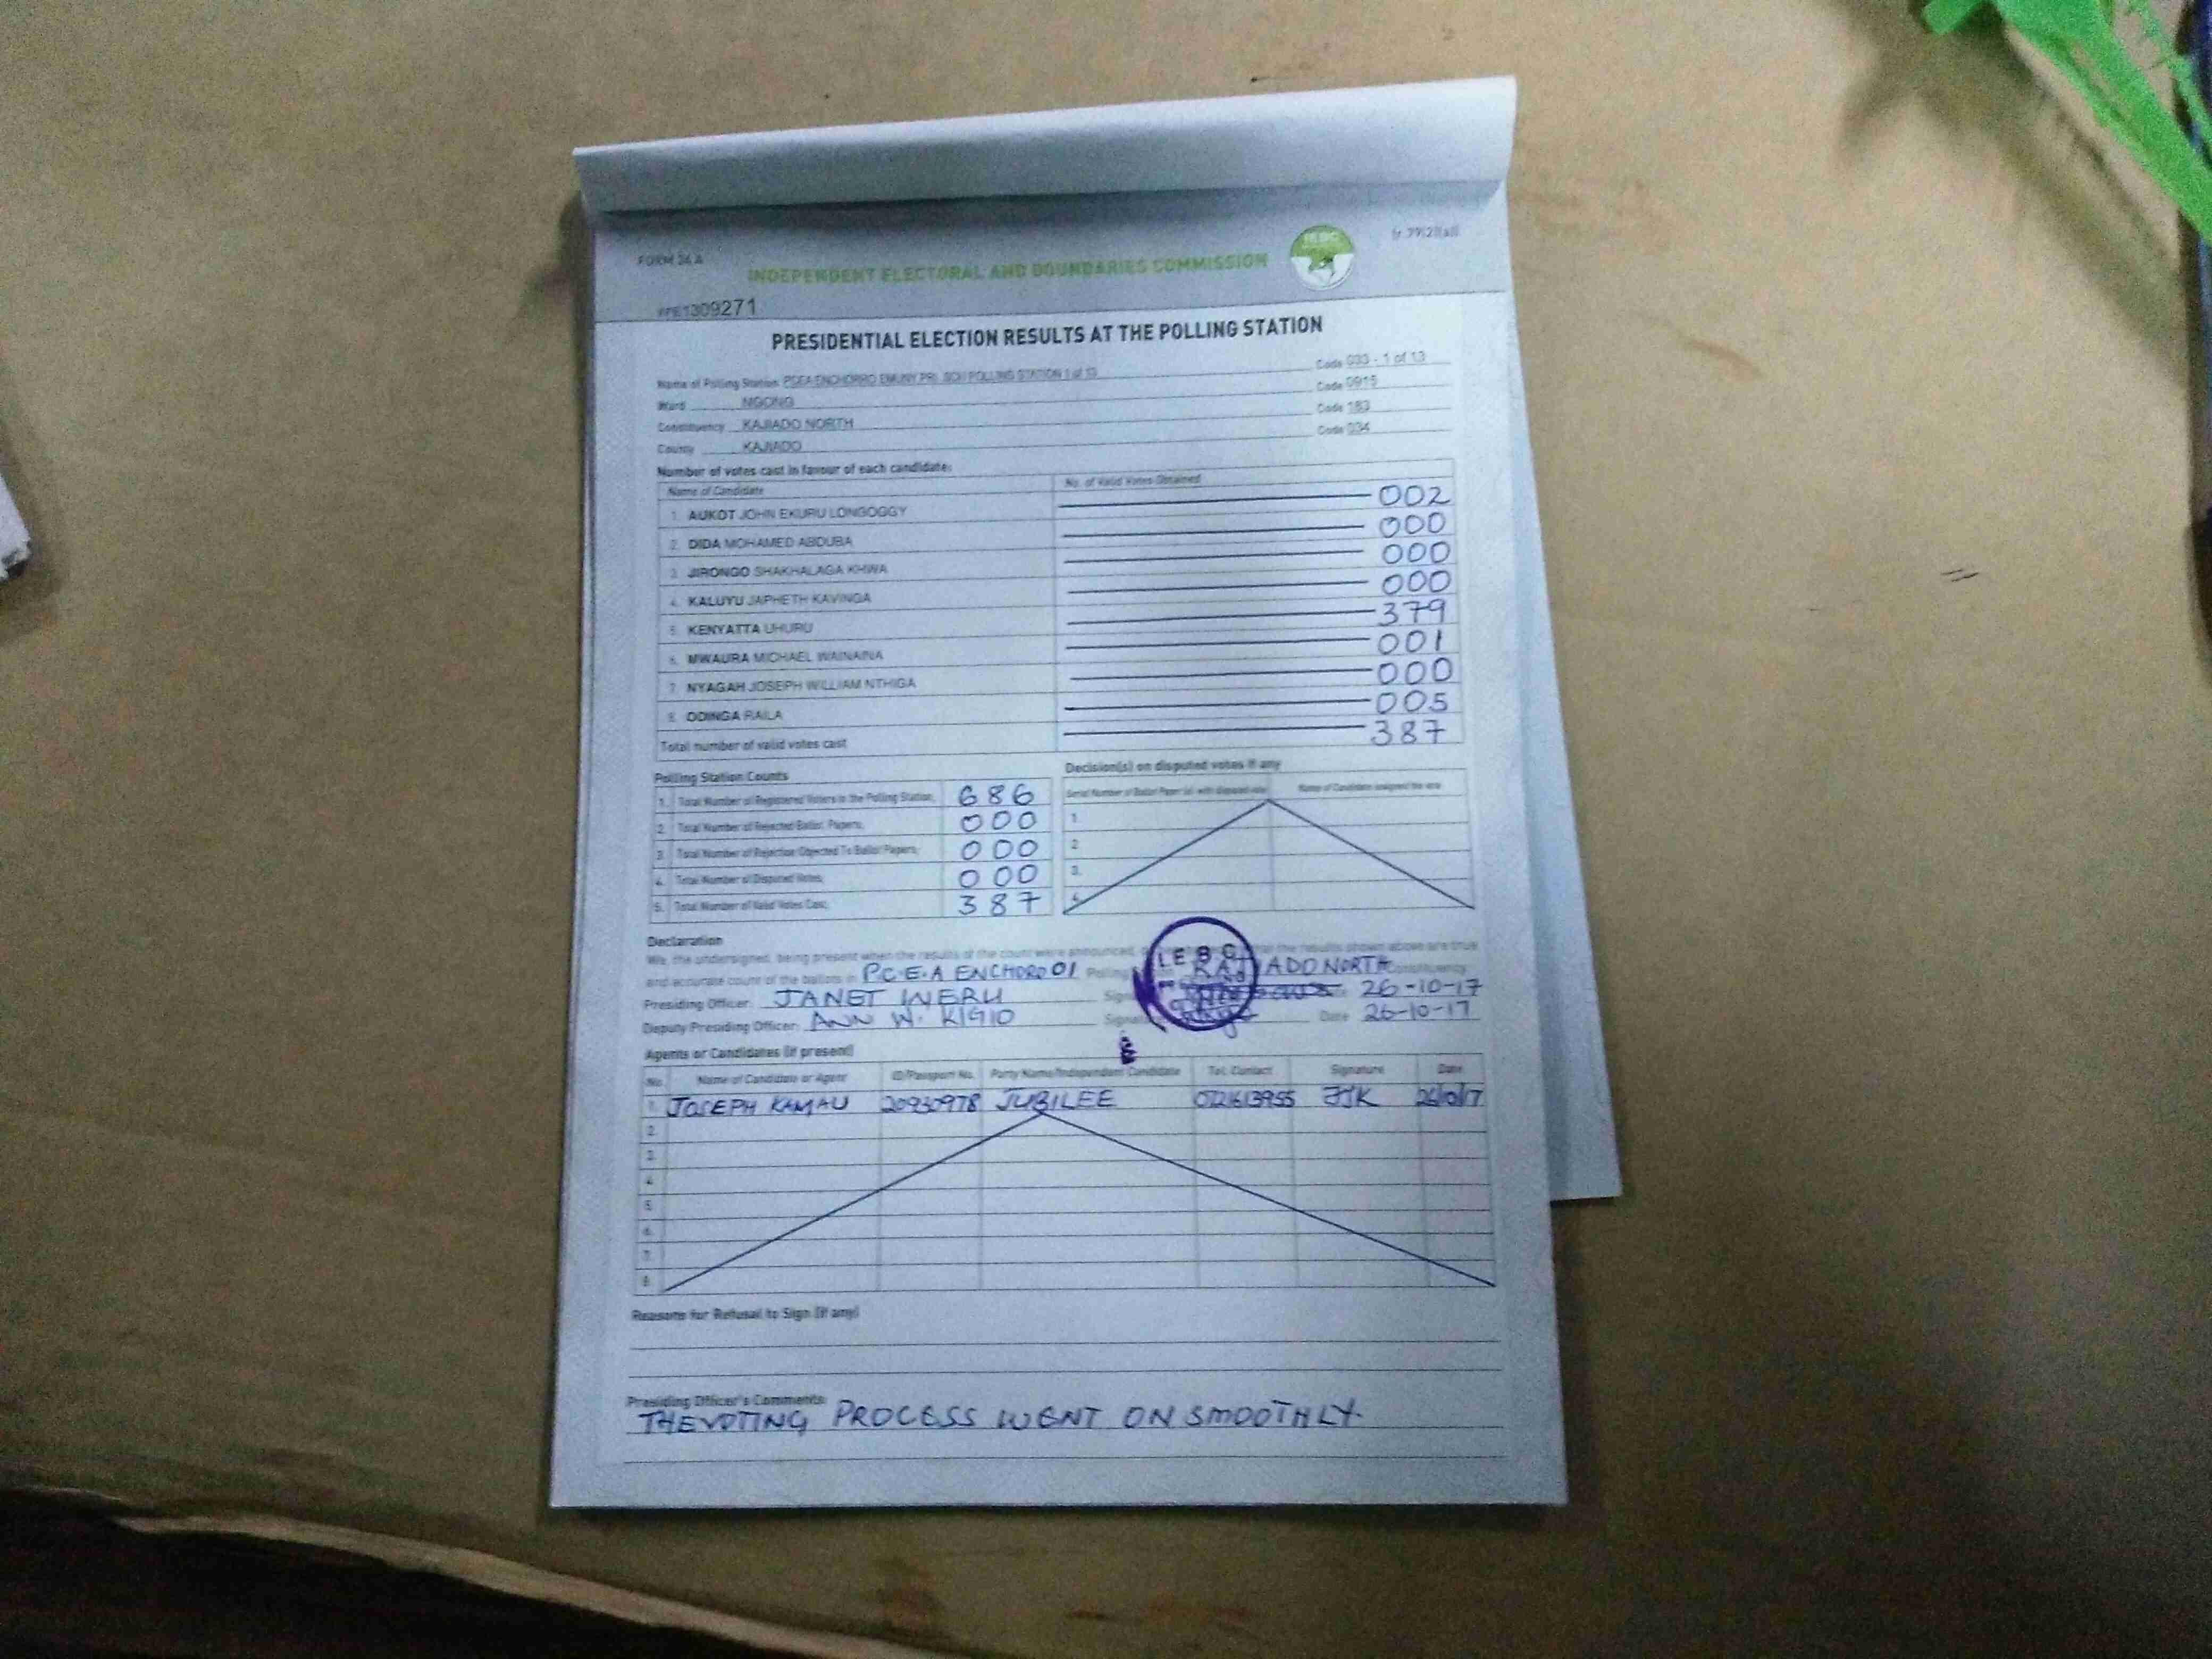 FORM 34 A
(r.79(2)(a))
INDEPENDENT ELECTORAL AND BOUNDARIES COMMISSION
1309271
PRESIDENTIAL ELECTION RESULTS AT THE POLLING STATION
Name of Polling Station PCEA ENCHORRO EMUNY PRI. SCH POLLING STATION 1 of 13 Code 033 - 1 of 13
Ward NGONG Code 0915
Constituency KAJIADO NORTH Code 183
County KAJIADO Code 034
Number of votes cast in favour of each candidate:
Name of Candidate No. of Valid Votes Obtained
1. AUKOT JOHN EKURU LONGOGGY 002
2. DIDA MOHAMED ABDUBA 000
3. JIRONGO SHAKHALAGA KHWA 000
4. KALUYU JAPHETH KAVINGA 000
5. KENYATTA UHURU 379
6. MWAURA MICHAEL WAINAINA 001
7. NYAGAH JOSEPH WILLIAM NTHIGA 000
8. ODINGA RAILA 005
Total number of valid votes cast 387
Polling Station Counts
1. Total Number of Registered Voters in the Polling Station; 686
2. Total Number of Rejected Ballot Papers; 000
3. Total Number of Rejection Objected To Ballot Papers; 000
4. Total Number of Disputed Votes; 000
5. Total Number of Valid Votes Cast; 387
Decision(s) on disputed votes if any
Serial Number of Ballot Paper (s) with disputed vote Name of Candidate assigned the vote
1.
2.
3.
4.
Declaration
We, the undersigned, being present when the results of the count were announced, the results shown above are true
and accurate count of the ballots in P.C.E.A ENCHORO 01 Polling KAJIADO NORTH Constituency
Presiding Officer: JANET WERU 26-10-17
Deputy Presiding Officer: ANN W. KIGIO Signature Date 26-10-17
IEBC
Agents or Candidates (if present)
No. Name of Candidate or Agent ID/Passport No. Party Name/Independent Candidate Tel. Contact Signature Date
1. JOSEPH KAMAU 20930978 JUBILEE 0721613955 JJK 26/10/17
2.
3.
4.
5.
6.
7.
8.
Reasons for Refusal to Sign (if any)
Presiding Officer's Comments:
THE VOTING PROCESS WENT ON SMOOTHLY.